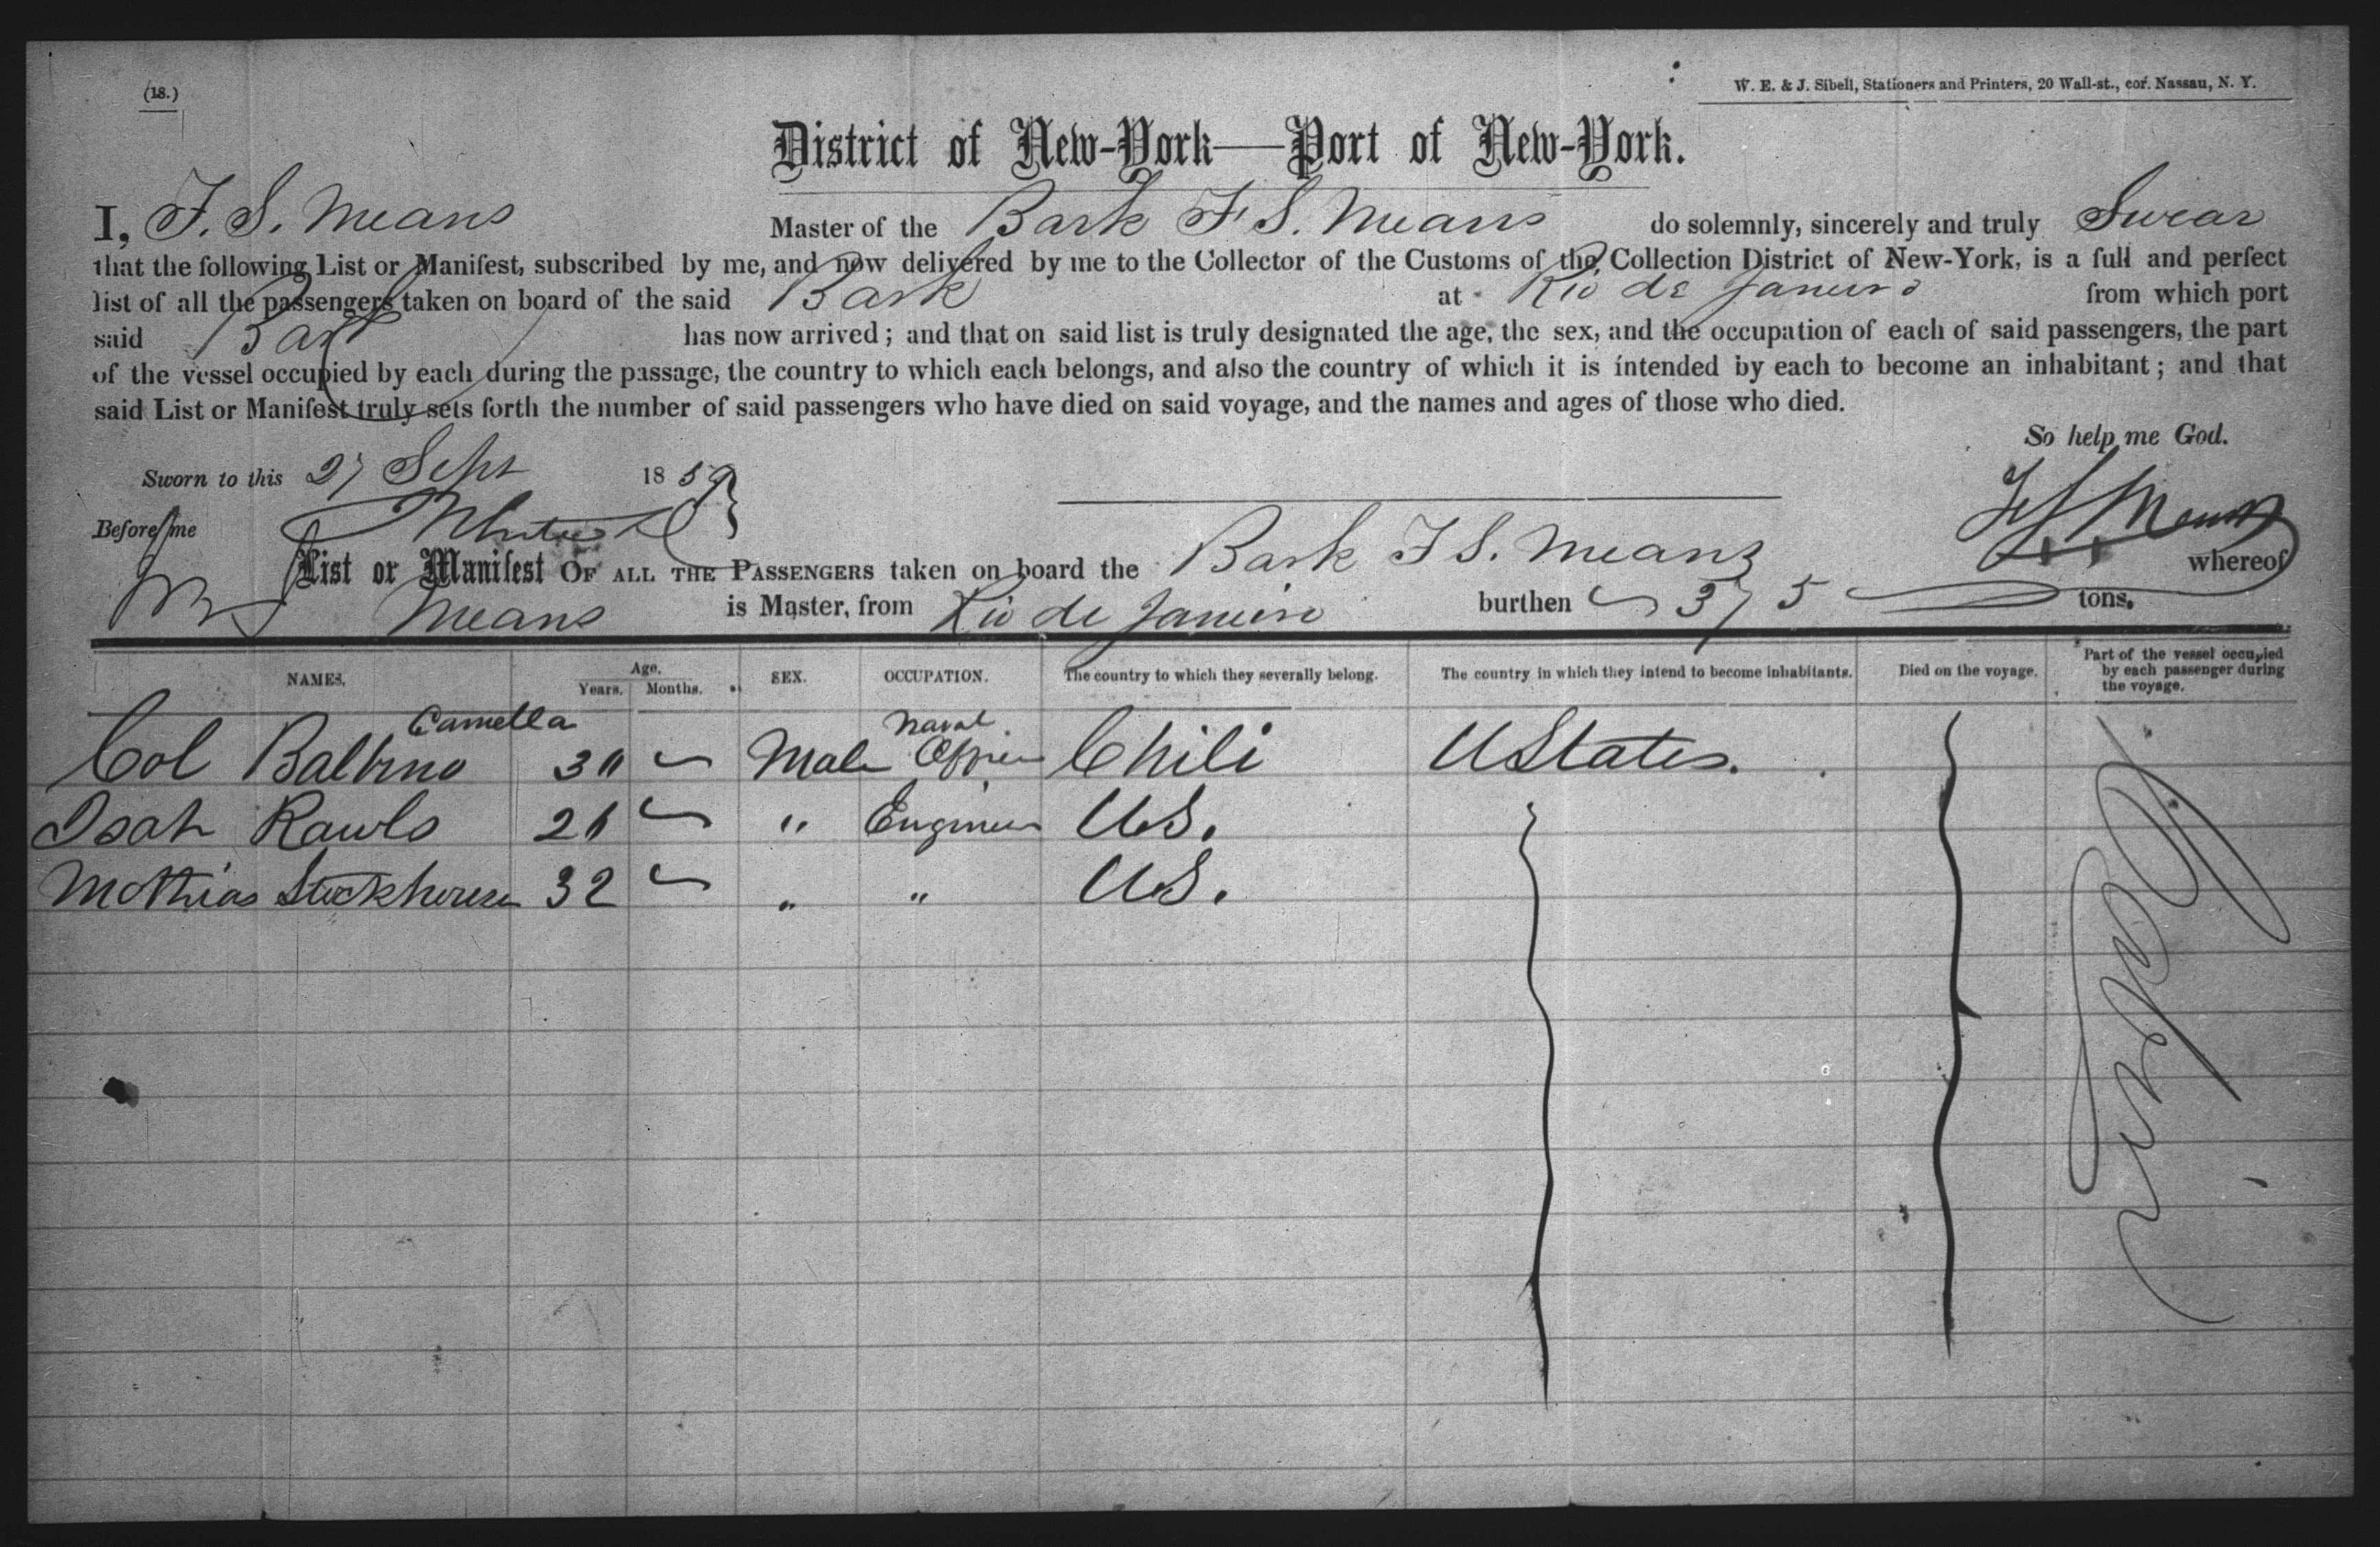 (18.)
W. E. & J. Sibell, Stationers and Printers, 20 Wall-st., cor. Nassau, N. Y.
District of New-York—Port of New-York.
I, F. S. Means Master of the Bark F S. Means do solemnly, sincerely and truly Swear
that the following List or Manifest, subscribed by me, and now delivered by me to the Collector of the Customs of the Collection District of New-York, is a full and perfect
list of all the passengers taken on board of the said Bark at Rio de Janeiro from which port
said Bark has now arrived; and that on said list is truly designated the age, the sex, and the occupation of each of said passengers, the part
of the vessel occupied by each during the passage, the country to which each belongs, and also the country of which it is intended by each to become an inhabitant; and that
said List or Manifest truly sets forth the number of said passengers who have died on said voyage, and the names and ages of those who died.
So help me God.
Sworn to this 27 Sept 1859
Before me
F S Means
List or Manifest OF ALL THE PASSENGERS taken on board the Bark F S. Means whereof
Means is Master, from Rio de Janeiro burthen 375 tons.
NAMES. Age. Years. Months. SEX. OCCUPATION. The country to which they severally belong. The country in which they intend to become inhabitants. Died on the voyage. Part of the vessel occupied by each passenger during the voyage.
Col Balbino Camella 30 Male Naval Officer Chili UStates.
Isah Rawls 21 " Engineer U.S.
Mathias 32 " " U.S.
Cabin